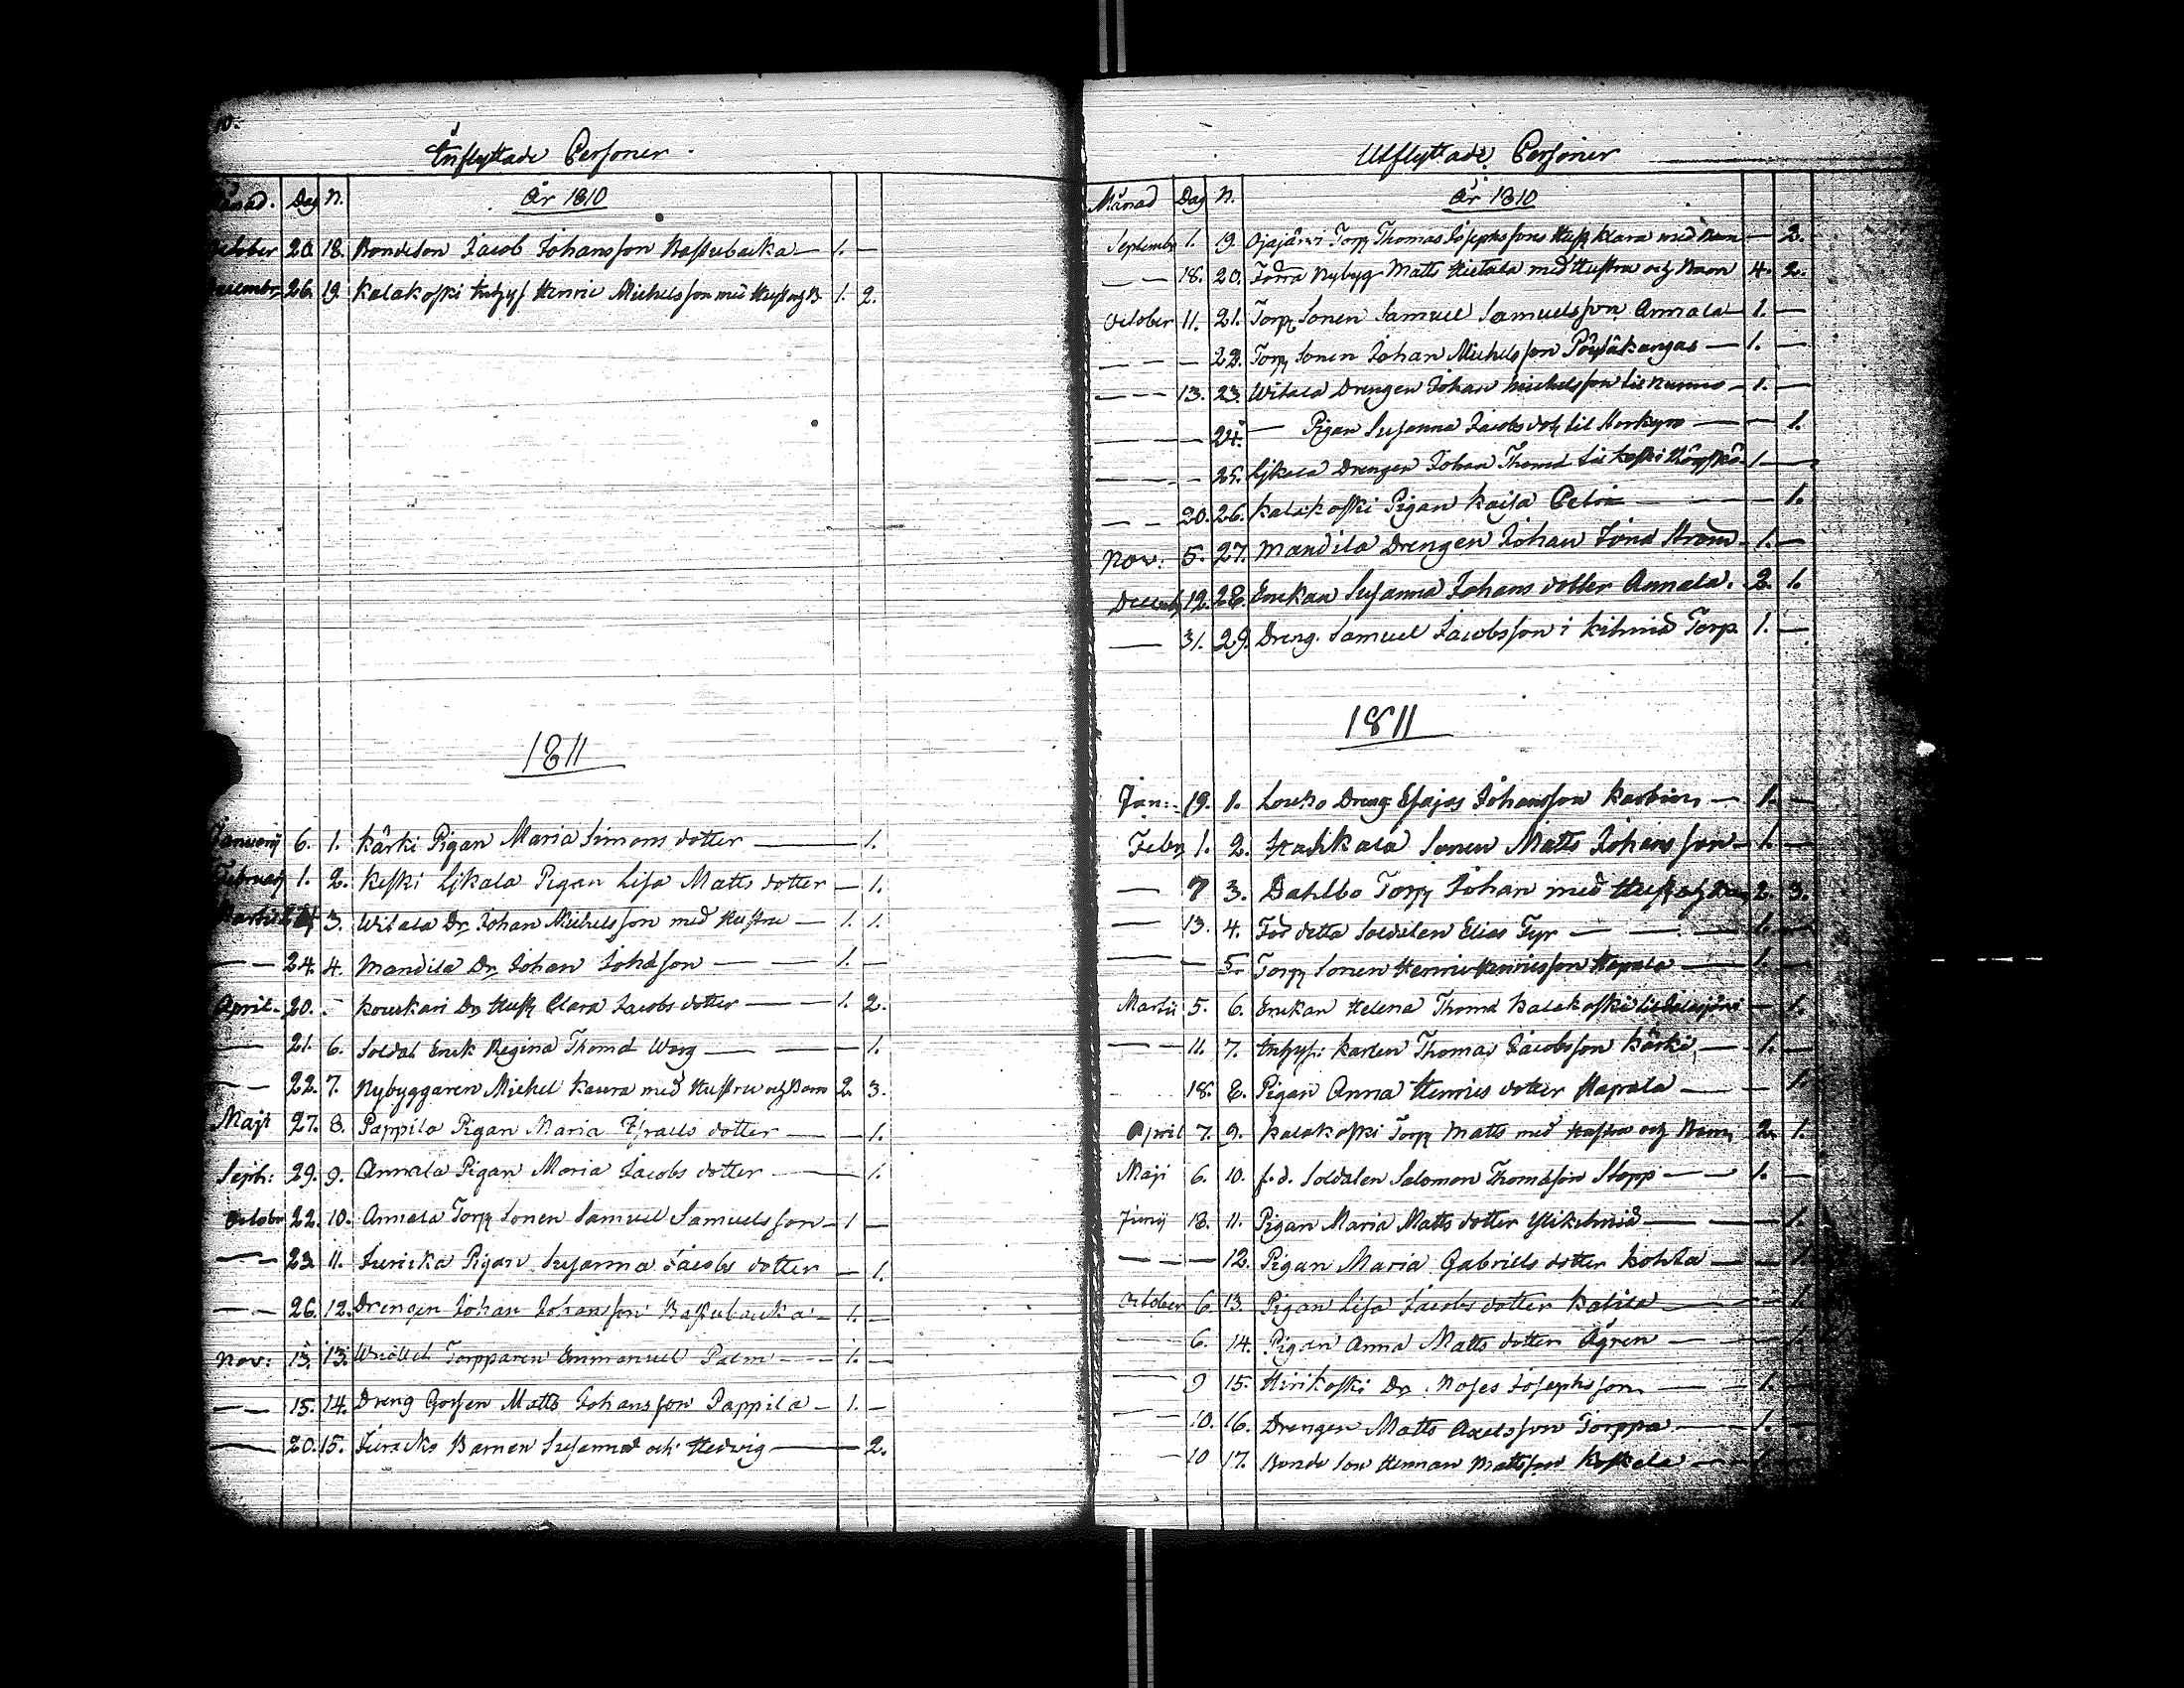 10.
Inflyttade Personer.
Månad. Dag N. År 1810
October 20 18. Bondeson Jacob Johansson Bastubacka — 1. —
Decembr 26. 19. Kalakoski Inhys Henric Michelsson med Hust och B. 1. 2.
1811
Januarij 6. 1. Kärki Pigan Maria Simons dotter — 1.
Februarij 1. 2. Keski Ljkala Pigan Lisa Matts dotter — 1.
Martii 3. Witala Dr. Johan Michelsson med Hustru — 1. 1.
— — 24. 4. Mandila Dr. Johan Johansson — — 1. —
April. 20. Kouckari Dr Hust Clara Jacobs dotter — — 1. 2.
— 21. 6. Soldat Enk Regina Thomæ Warg — — 1.
— — 22. 7. Nybyggaren Michel Kaura med Hustru och Barn 2. 3.
Maji 27. 8. Pappila Pigan Maria Israels dotter — — 1.
Septr: 29. 9. Annala Pigan Maria Jacobs dotter — 1.
October 22. 10. Annala Torp Sonen Samuel Samuelsson — 1 —
— 23. 11. Pigan Susanna Jacobs dotter — 1.
— — 26. 12. Drengen Johan Johansson Bastubacka — 1. —
Nov: 13. 13. Torpparen Emmanuel Palm — — 1. —
— — 15. 14. Dreng Gossen Matts Johansson Pappila — 1. —
— 20. 15. Barnen Susanna och Hedvig — 2.
Utflyttade Personer
Månad Dag N. År 1810
Septembr 1. 19. Ojajärvi Torp Thomas Josephssons Hust Klara med Barn — 2.
— — 18. 20. Nybyg Matts Hietala med Hustru och Barn 4. 2.
October 11. 21. Torp Sonen Samuel Samuelsson Annala 1. —
— — — 22. Torp Sonen Johan Michelsson Pöystäkangas — 1. —
— — — 13. 23. Witala Drengen Johan Michelsson til Nurmo — 1. —
— — — 24. — Pigan Susanna Jacobs dotr til Storkyro — — 1.
— — — 25. Ljkala Drengen Johan Thomæ til 1 —
— — 20. 26. Kalakoski Pigan Kajsa Petri — — 1.
Nov: 5. 27. Mandila Drengen Johan Ström — 1. —
Decemb 12. 28. Enckan Susanna Johans dotter Annala. 2. 1.
— 31. 29. Dreng. Samuel Jacobsson i Kihniä Torp. 1. —
1811
Jan: 19. 1. Louko Dreng Esajas Johansson — 1. —
Febr 1. 2. Sonen Matts Johansson — 1. —
— 7 3. Dahlbo Torp Johan med Hust och Barn 2. 3.
— 13. 4. Soldaten Elias Fyr — — 1. —
— — 5. Torp Sonen Henric Henricsson Hapala — 1. —
Martii 5. 6. Enckan Helena Thomæ Kalakoski til — 1.
— — 11. 7. Inhys: Karlen Thomas Jacobsson Kärki — 1. —
18. 8. Pigan Anna Henrics dotter Hapala — — 1.
April 7. 9. Kalakoski Torp Matts med Hustru och Barn 2. 1.
Maji 6. 10. f. d. Soldaten Salomon Thomasson Stopp — — 1. —
Junij 18. 11. Pigan Maria Matts dotter Ylikihniä — — 1.
— — — 12. Pigan Maria Gabriels dotter — — 1.
October 6. 13. Pigan Lisa Jacobs dotter — — 1.
— 6. 14. Pigan Anna Matts dotter Ågren — — 1.
— 9 15. Hirikoski Dr. Moses Josephsson — — 1. —
— — 10. 16. Drengen Matts Axelsson Torppa — 1. —
— 10 17. Bonde Son Herman Mattsson — 1. —